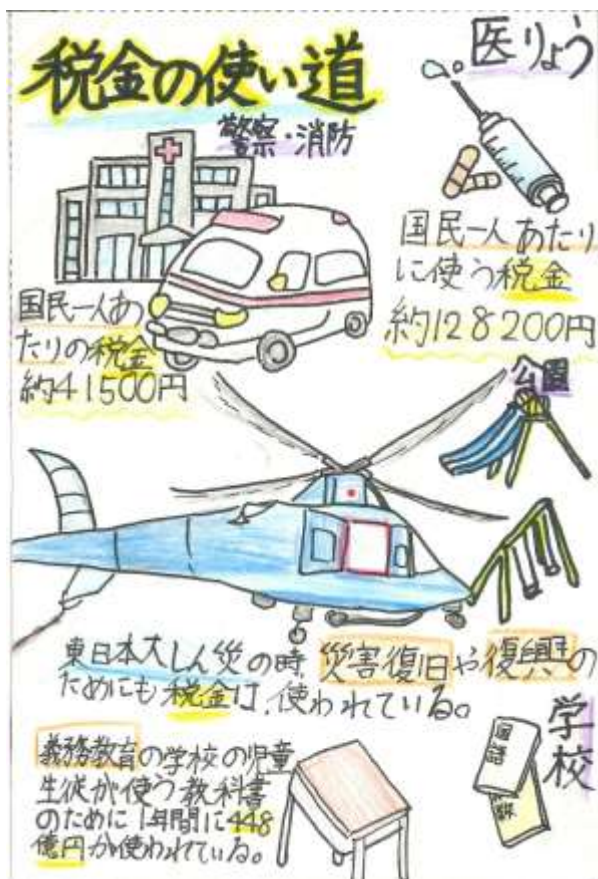 税金の使い道
医りょう
警察・消防
国民一人あたり
に使う税金
約128200円
国民一人あ
たりの税金
約41500円
公園
東日本大しん災の時、災害復旧や復興の
ためにも税金は、使われている。
学校
国語
義務教育の学校の児童
生徒が使う教科書
のために1年間に448
億円が使われている。